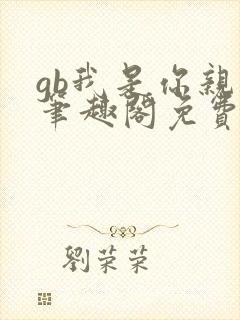 gb我是你親
筆趣閣免費
劉荣荣